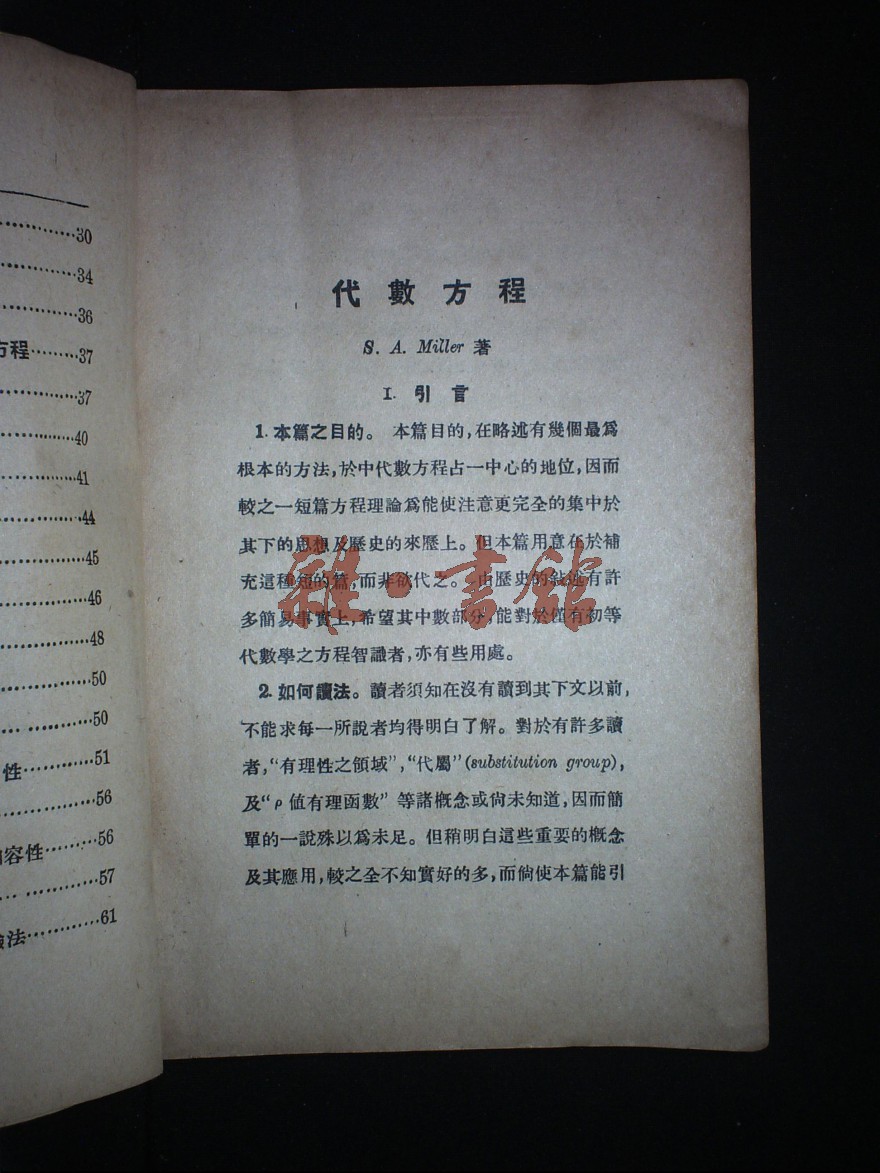 30
34
36
方程………37
37
40
41
44
45
46
48
50
50
性…………51
56
容性………56
57
法…………61
代數方程
S. A. Miller 著
I. 引言
1. 本篇之目的。 本篇目的,在略述有幾個最爲
根本的方法,於中代數方程占一中心的地位,因而
較之一短篇方程理論爲能使注意更完全的集中於
其下的思想及歷史的來歷上。但本篇用意在於補
充這種短的篇,而非欲代之。由歷史的敍述有許
多簡易事實上,希望其中數部分,能對於僅有初等
代數學之方程智識者,亦有些用處。
2. 如何讀法。讀者須知在沒有讀到其下文以前,
不能求每一所說者均得明白了解。對於有許多讀
者,“有理性之領域”,“代屬”(substitution group),
及“ρ值有理函數”等諸概念或尙未知道,因而簡
單的一說殊以爲未足。但稍明白這些重要的概念
及其應用,較之全不知實好的多,而倘使本篇能引
雜·書館